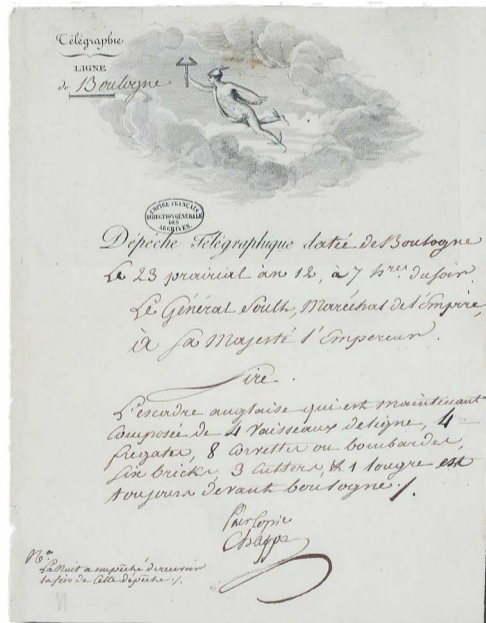 Télégraphie
LIGNE
de Boulogne
EMPIRE FRANÇAIS
DIRECTION GÉNÉRALE
DES
ARCHIVES
Dépêche Télégraphique datée de Boulogne
Le 23 prairial an 12, à 7 hres du soir.
Le Général Soult, Maréchal de l'Empire,
à Sa Majesté l'Empereur.
Sire.
L'escadre anglaise qui est maintenant
Composée de 4 Vaisseaux de ligne, 4
fregates, 8 Corvettes ou bombardes,
Six bricks, 3 Cutters, & 1 lougre est
toujours devant boulogne ./.
Pour Copie
Chappe
Na
La Nuit a empêché de recevoir
la fin de Cette dépêche ./.